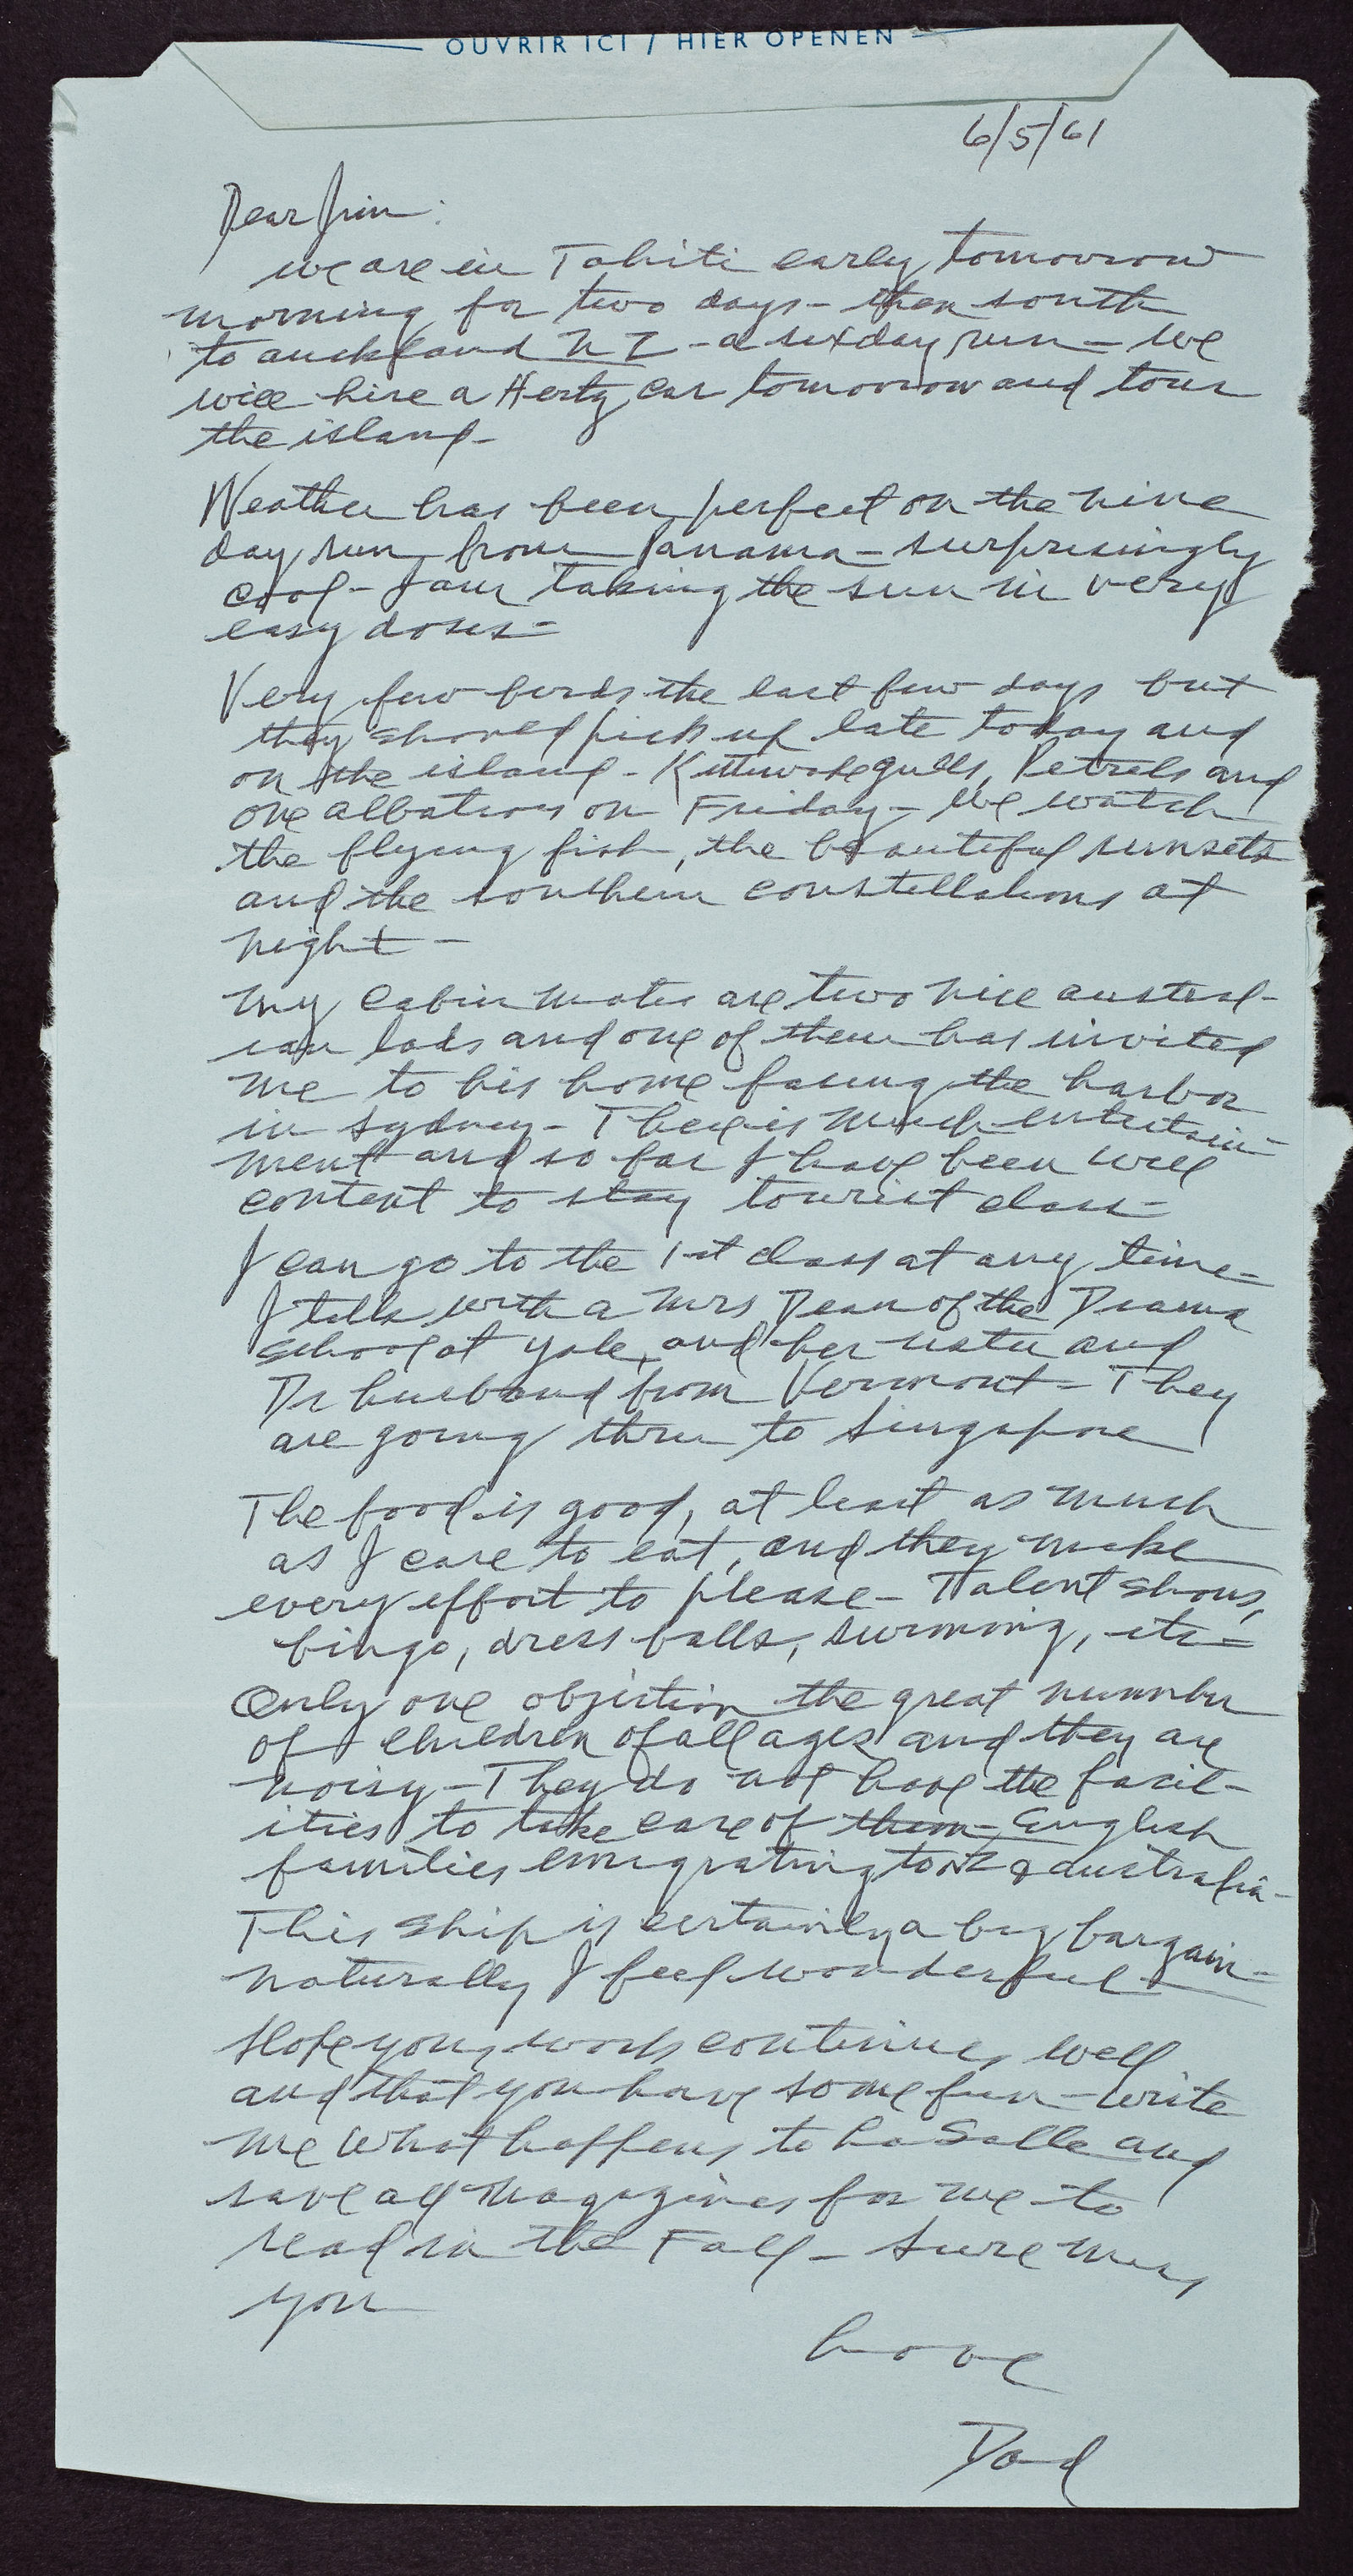 OUVRIR ICI / HIER OPENEN
6/5/61
Dear Jim:
we are in Tahiti early tomorrow
morning for two days - then south
to auckland NZ - a six day run - we
will hire a Hertz car tomorrow and tour
the island -
Weather has been perfect on the nine
day run from Panama - surprisingly
cool - I am taking the sun in very
easy doses -
Very few birds the last few days but
they should pick up late today and
on the island - Kittiwake gulls, Petrels and
one albatross on Friday - We watch
the flying fish, the beautiful sunsets
and the southern constellations at
night -
My cabin mates are two nice austral-
ian lads and one of them has invited
me to his home facing the harbor
in Sydney - There is much entertain-
ment and so far I have been well
content to stay tourist class -
I can go to the 1st class at any time -
I talk with a Mrs Dean of the Drama
School at Yale, and her sister and
Dr husband from Vermont - They
are going thru to Singapore
The food is good, at least as much
as I care to eat, and they make
every effort to please - Talent shows,
bingo, dress balls, swimming, etc -
Only one objection the great number
of children of all ages and they are
noisy - They do not have the facil-
ities to take care of them - English
families emigrating to NZ & Australia -
This ship is certainly a big bargain -
naturally I feel wonderful -
Hope your work continues well
and that you have some fun - write
me what happens to La Salle and
save all magazines for me to
read in the Fall - Sure miss
you
Love
Dad